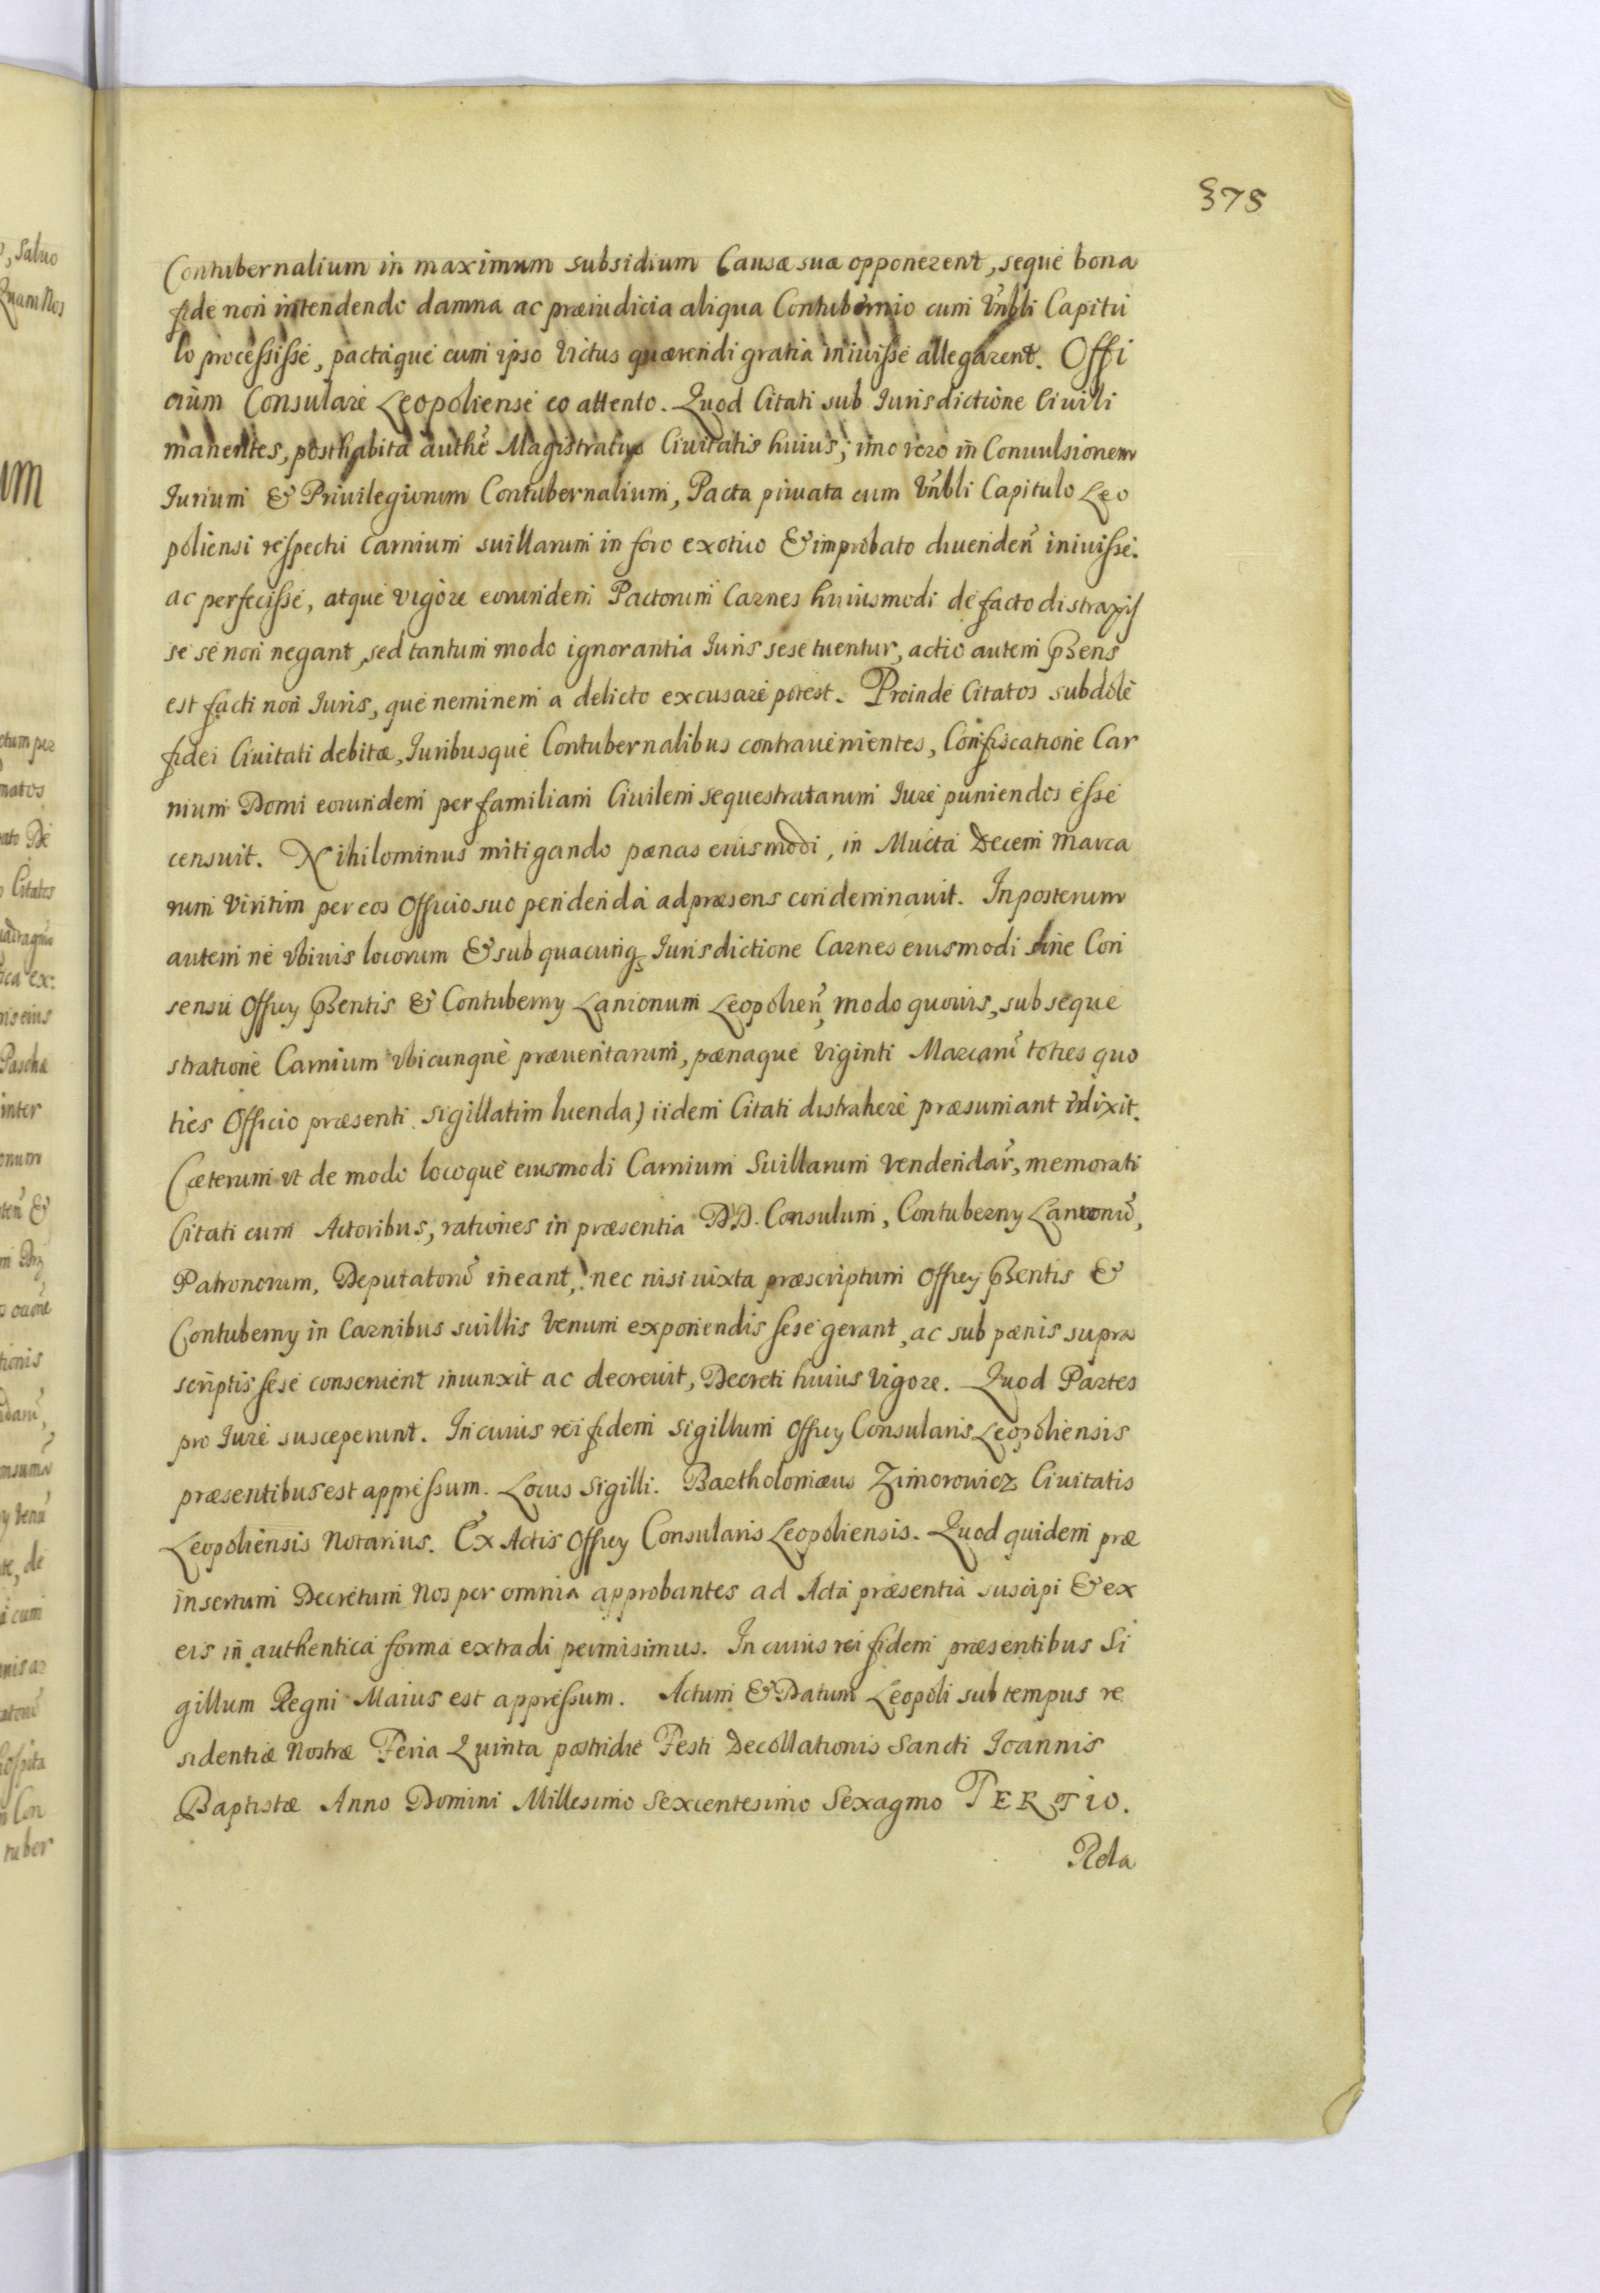 375
Contubernalium in maximum subsidium Causæ suæ opponerent, seque bona
fide non intendendo damna ac præiudicia aliqua Contubernio cum Vnbli Capitu
lo processisse, pactaque cum ipso Victus quærendi gratia iniuisse allegarent. Offi
cium Consulare Leopoliense eo attento. Quod Citati sub Jurisdictione Ciuili
manentes, posthabita authē Magistratus Ciuitatis huius, imo vero in Conuulsionem
Jurium & Priuilegiorum Contubernalium, Pacta priuata cum Vnbli Capitulo Leo
poliensi respectu Carnium suillarum in foro exotico & improbato diuendeñ iniuisse.
ac perfecisse, atque vigore eorundem Pactorum Carnes huiusmodi de facto distraxis
se se non negant, sed tantum modo ignorantia Juris sese tuentur, actio autem pñens
est facti non Juris, que neminem a delicto excusare potest. Proinde Citatos subdole
fidei Ciuitati debitæ, Juribusque Contubernalibus contrauenientes, Confiscatione Car
nium Domi eorundem per familiam Ciuilem sequestratarum Jure puniendos esse
censuit. Nihilominus mitigando pænas eiusmodi, in Mucta Decem Marca
rum Viritim per eos Officio suo pendenda ad præsens condemnauit. In posterum
autem ne vbiuis locorum & sub quacunq; Jurisdictione Carnes eiusmodi sine Con
sensu Offcy pñentis & Contuberny Lanionum Leopolieñ, modo quouis, sub seque
stratione Carnium vbicunque præuentarum, pænaque Viginti Marcarū toties quo
ties Officio præsenti sigillatim luenda) iidem Citati distrahere præsumant indixit.
Cæterum vt de modo locoque eiusmodi Carnium Suillarum vendendar̄, memorati
Citati cum Actoribus, rationes in præsentia D.D. Consulum, Contuberny Lanionū,
Patronorum, Deputatorū ineant, nec nisi iuxta præscriptum Offcy pñentis &
Contuberny in Carnibus suillis Venum exponendis sese gerant, ac sub pænis supra
scriptis sese conseruent iniunxit ac decreuit, Decreti huius Vigore. Quod Partes
pro Jure susceperunt. In cuius rei fidem Sigillum Offcy Consularis Leopoliensis
præsentibus est appressum. Locus Sigilli. Bartholomæus Zimorowicz Ciuitatis
Leopoliensis Notarius. Ex Actis Offcy Consularis Leopoliensis. Quod quidem præ
insertum Decretum Nos per omnia approbantes ad Acta præsentia suscipi & ex
eis in authentica forma extradi permisimus. In cuius rei fidem præsentibus Si
gillum Regni Maius est appressum. Actum & Datum Leopoli sub tempus re
sidentiæ Nostræ Feria Quinta postridie Festi Decollationis Sancti Joannis
Baptistæ Anno Domini Millesimo Sexcentesimo Sexagmo TERTIO.
Rela